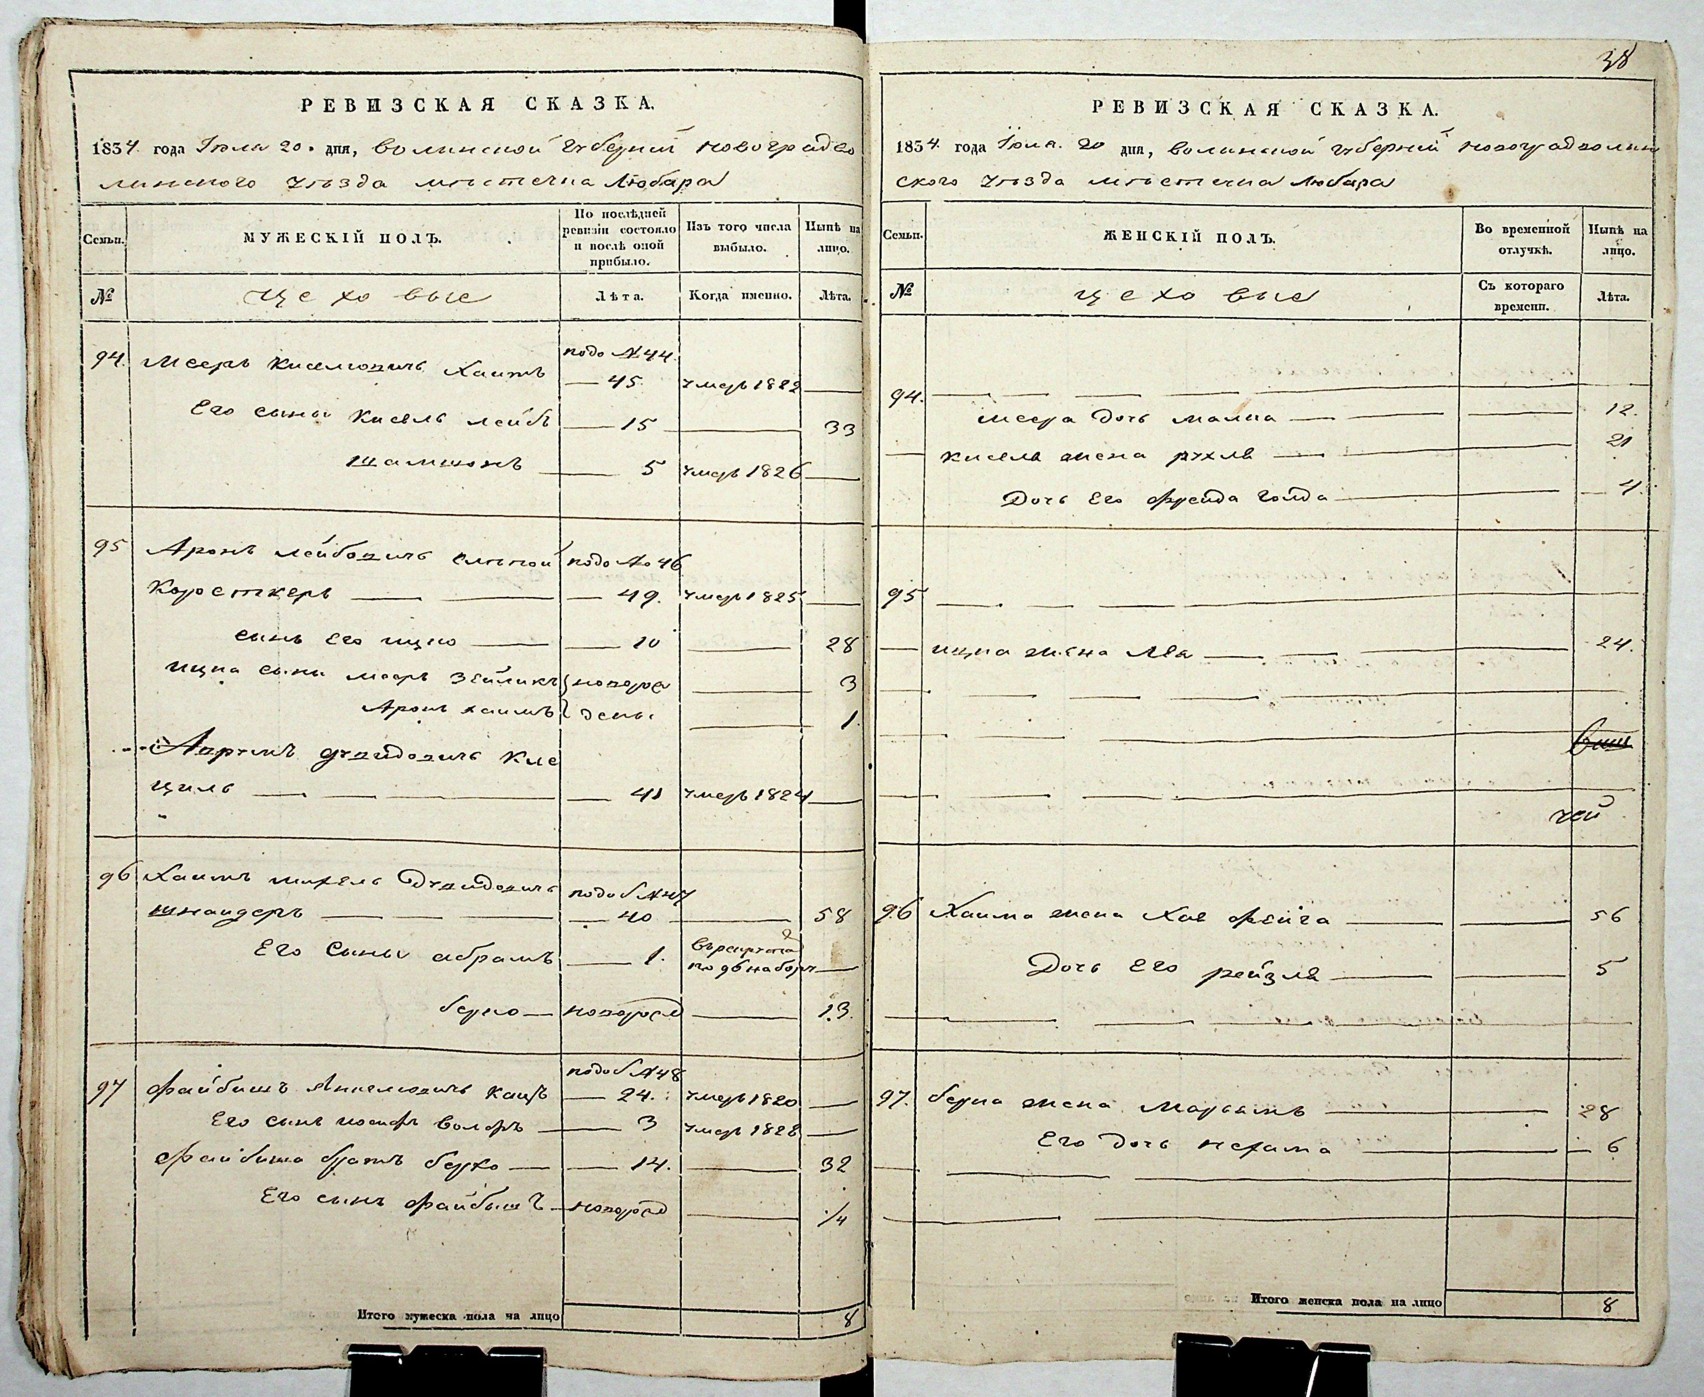 РЕВИЗСКАЯ СКАЗКА.
1834 года Іюля 20 дня, волинской губерніи новоградво
линского уѣзда мѣстечка Любара
Семьи.
МУЖЕСКІЙ ПОЛЪ.
По послѣдней ревизіи состояло и послѣ оной прибыло.
Изъ того числа выбыло.
Нынѣ на лицо.
№
цеховые
Лѣта.
Когда именно.
Лѣта.
94 Мееръ Киселіовичъ Хаитъ подо №44
45 умеръ 1822
Его сыны Кисель лейбъ 15 33
шамшонъ 5 умеръ 1826
95 Аронъ лейбовичъ слѣпой подо №46
Коросткеръ 49. умеръ 1825
сынъ его ицко 10 28
ицка сыны мееръ зейликъ новоро 3
Аронъ хаимъ дены 1
Аврумъ дувидовичъ Кле
циль 41 умеръ 1824
96 Хаимъ михель Дувидовичъ подо №47
шнайдеръ 40 58
Его сыны абрамъ 1. въ рекрута
по 96 набору
берко новород 13.
97 Файбишъ Анкелювичъ Кацъ подо №48
24. умеръ 1820
Его сынъ иосифъ волфъ 3 умеръ 1828
Файбиша братъ берко 14. 32
Его сынъ Файбишъ новород 1/4
Итого мужеска пола на лицо 8
38
РЕВИЗСКАЯ СКАЗКА.
1834 года Іюля 20 дня, волинской губерніи новоградволин
ского уѣзда мѣстечка Любара
Семьи.
ЖЕНСКІЙ ПОЛЪ.
Во временной отлучкѣ.
Нынѣ на лицо.
№
цеховые
Съ котораго времени.
Лѣта.
94.
меера дочь малка 12.
киселя жена рухля 21
Дочь его фрейда голда 4
95
ицка жена лея 24.
чей
96 Хаима жена Хае фейга 56
Дочь Его рейзля 5
97. берка жена марьямъ 28
Его дочь нехама 6
Итого женска пола на лицо 8